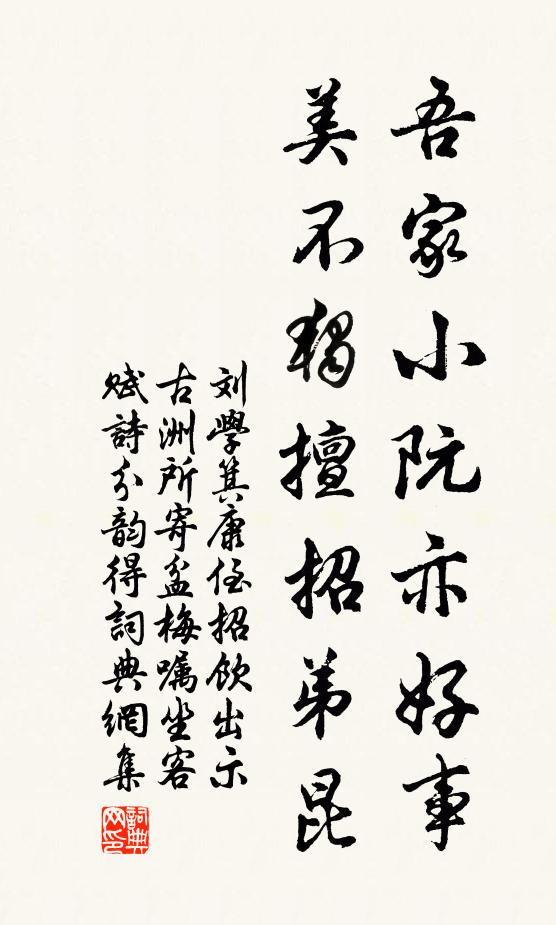 吾家小阮亦好事
美不獨擅招弟昆
刘學箕康侄招飲出示
古洲所寄盆梅嘱坐客
賦詩分韵得詞典網集
詞典网印